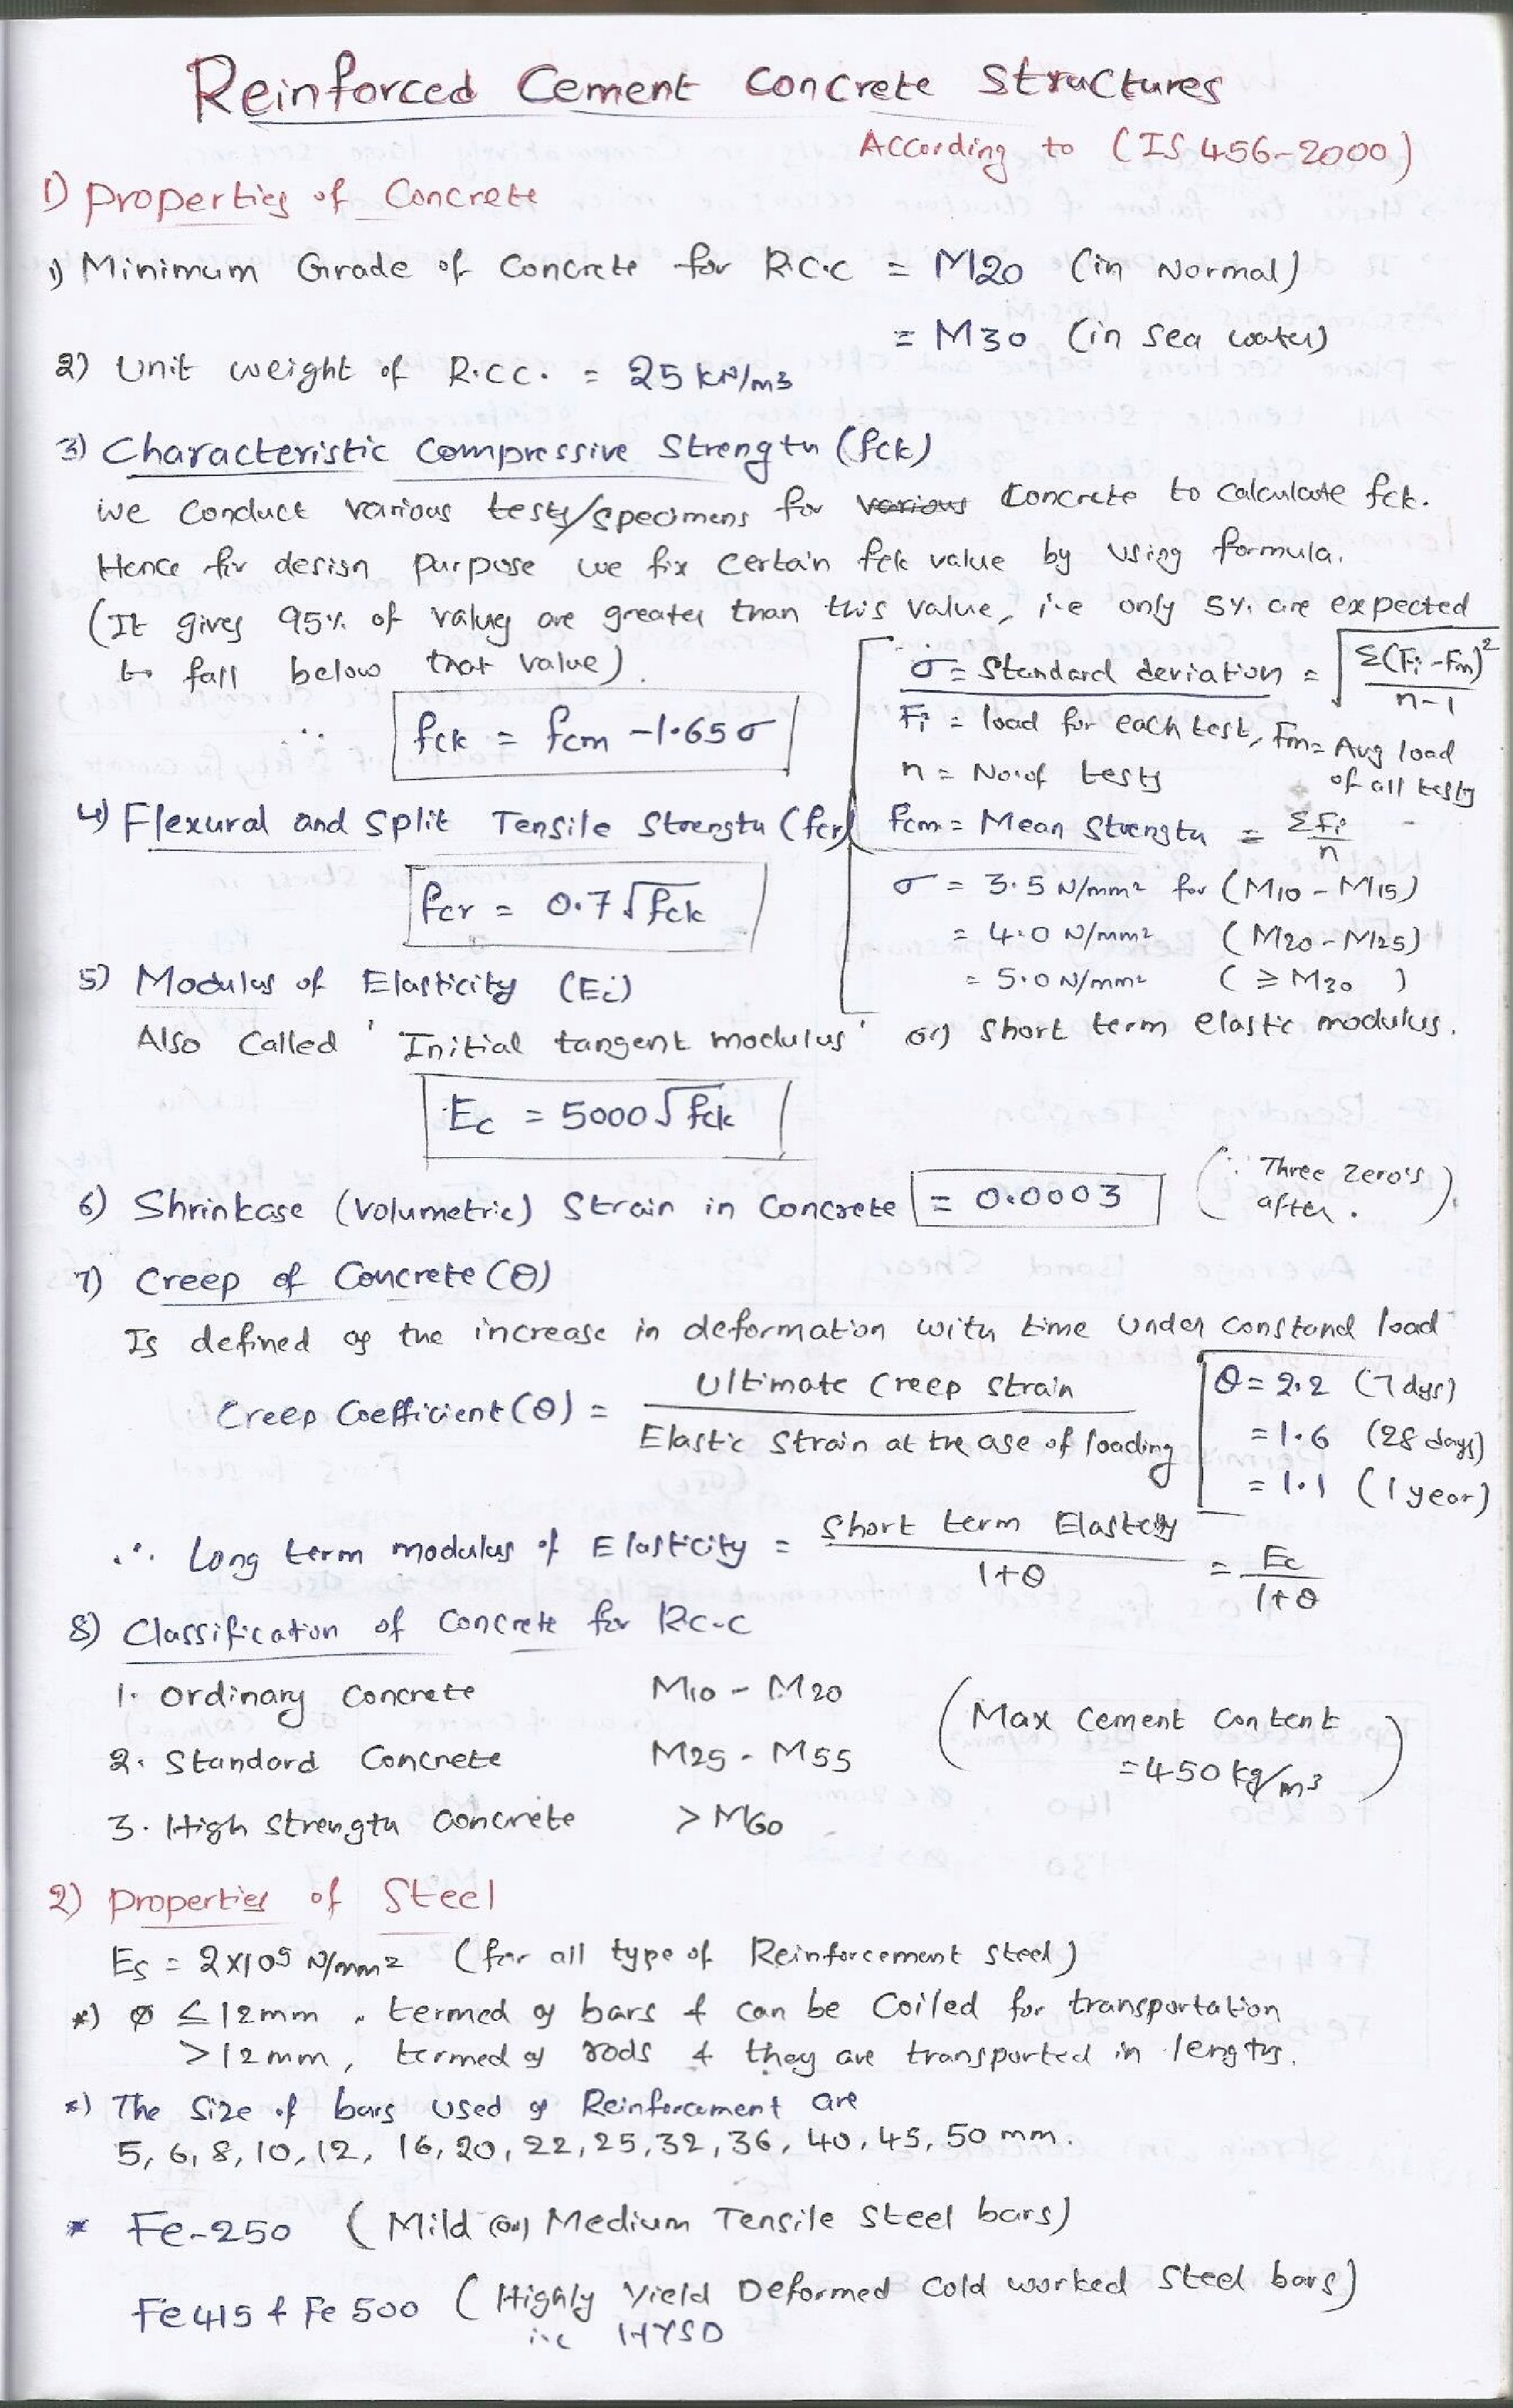 Reinforced Cement Concrete Structures
According to (IS 456-2000)
1) Properties of Concrete
1) Minimum Grade of Concrete for R.C.C = M20 (in Normal)
= M30 (in sea water)
2) Unit weight of R.C.C. = 25 kN/m3
3) Characteristic Compressive Strength (fck)
we conduct various tests/specimens for various concrete to calculate fck.
Hence for design purpose we fix certain fck value by using formula.
(It gives 95% of values are greater than this value, i.e only 5% are expected
to fall below that value).
∴ fck = fcm - 1.65σ
σ = Standard deviation = √Σ(Fi - Fm)²/n-1
Fi = load for each test, Fm = Avg load
of all tests
n = No. of tests
fcm = Mean Strength = ΣFi/n
σ = 3.5 N/mm² for (M10 - M15)
= 4.0 N/mm² (M20 - M25)
= 5.0 N/mm² (≥ M30 )
4) Flexural and Split Tensile Strength (fcr)
fcr = 0.7√fck
5) Modulus of Elasticity (Ec)
Also Called 'Initial tangent modulus' or) Short term elastic modulus.
Ec = 5000√fck
6) Shrinkage (Volumetric) Strain in Concrete = 0.0003 (∵ Three zero's
after . ).
7) Creep of Concrete (θ)
Is defined as the increase in deformation with time under constand load
Creep Coefficient (θ) = Ultimate Creep Strain
Elastic Strain at the age of loading
θ = 2.2 (7 dys)
= 1.6 (28 days)
= 1.1 (1 year)
∴ Long term modulus of Elasticity = Short term Elasticity/1+θ = Ec/1+θ
8) Classification of Concrete for R.C.C
1. Ordinary Concrete M10 - M20
2. Standard Concrete M25 - M55
3. High Strength Concrete > M60
(Max Cement Content
= 450 kg/m³)
2) Properties of Steel
Es = 2x10⁵ N/mm² (for all type of Reinforcement steel)
*) Ø ≤ 12mm, termed as bars & can be Coiled for transportation
> 12mm, termed as rods & they are transported in lengths.
*) The size of bars used as Reinforcement are
5, 6, 8, 10, 12, 16, 20, 22, 25, 32, 36, 40, 45, 50 mm.
* Fe-250 (Mild (or) Medium Tensile Steel bars)
Fe 415 & Fe 500 (Highly Yield Deformed Cold worked Steel bars)
i.e HYSD